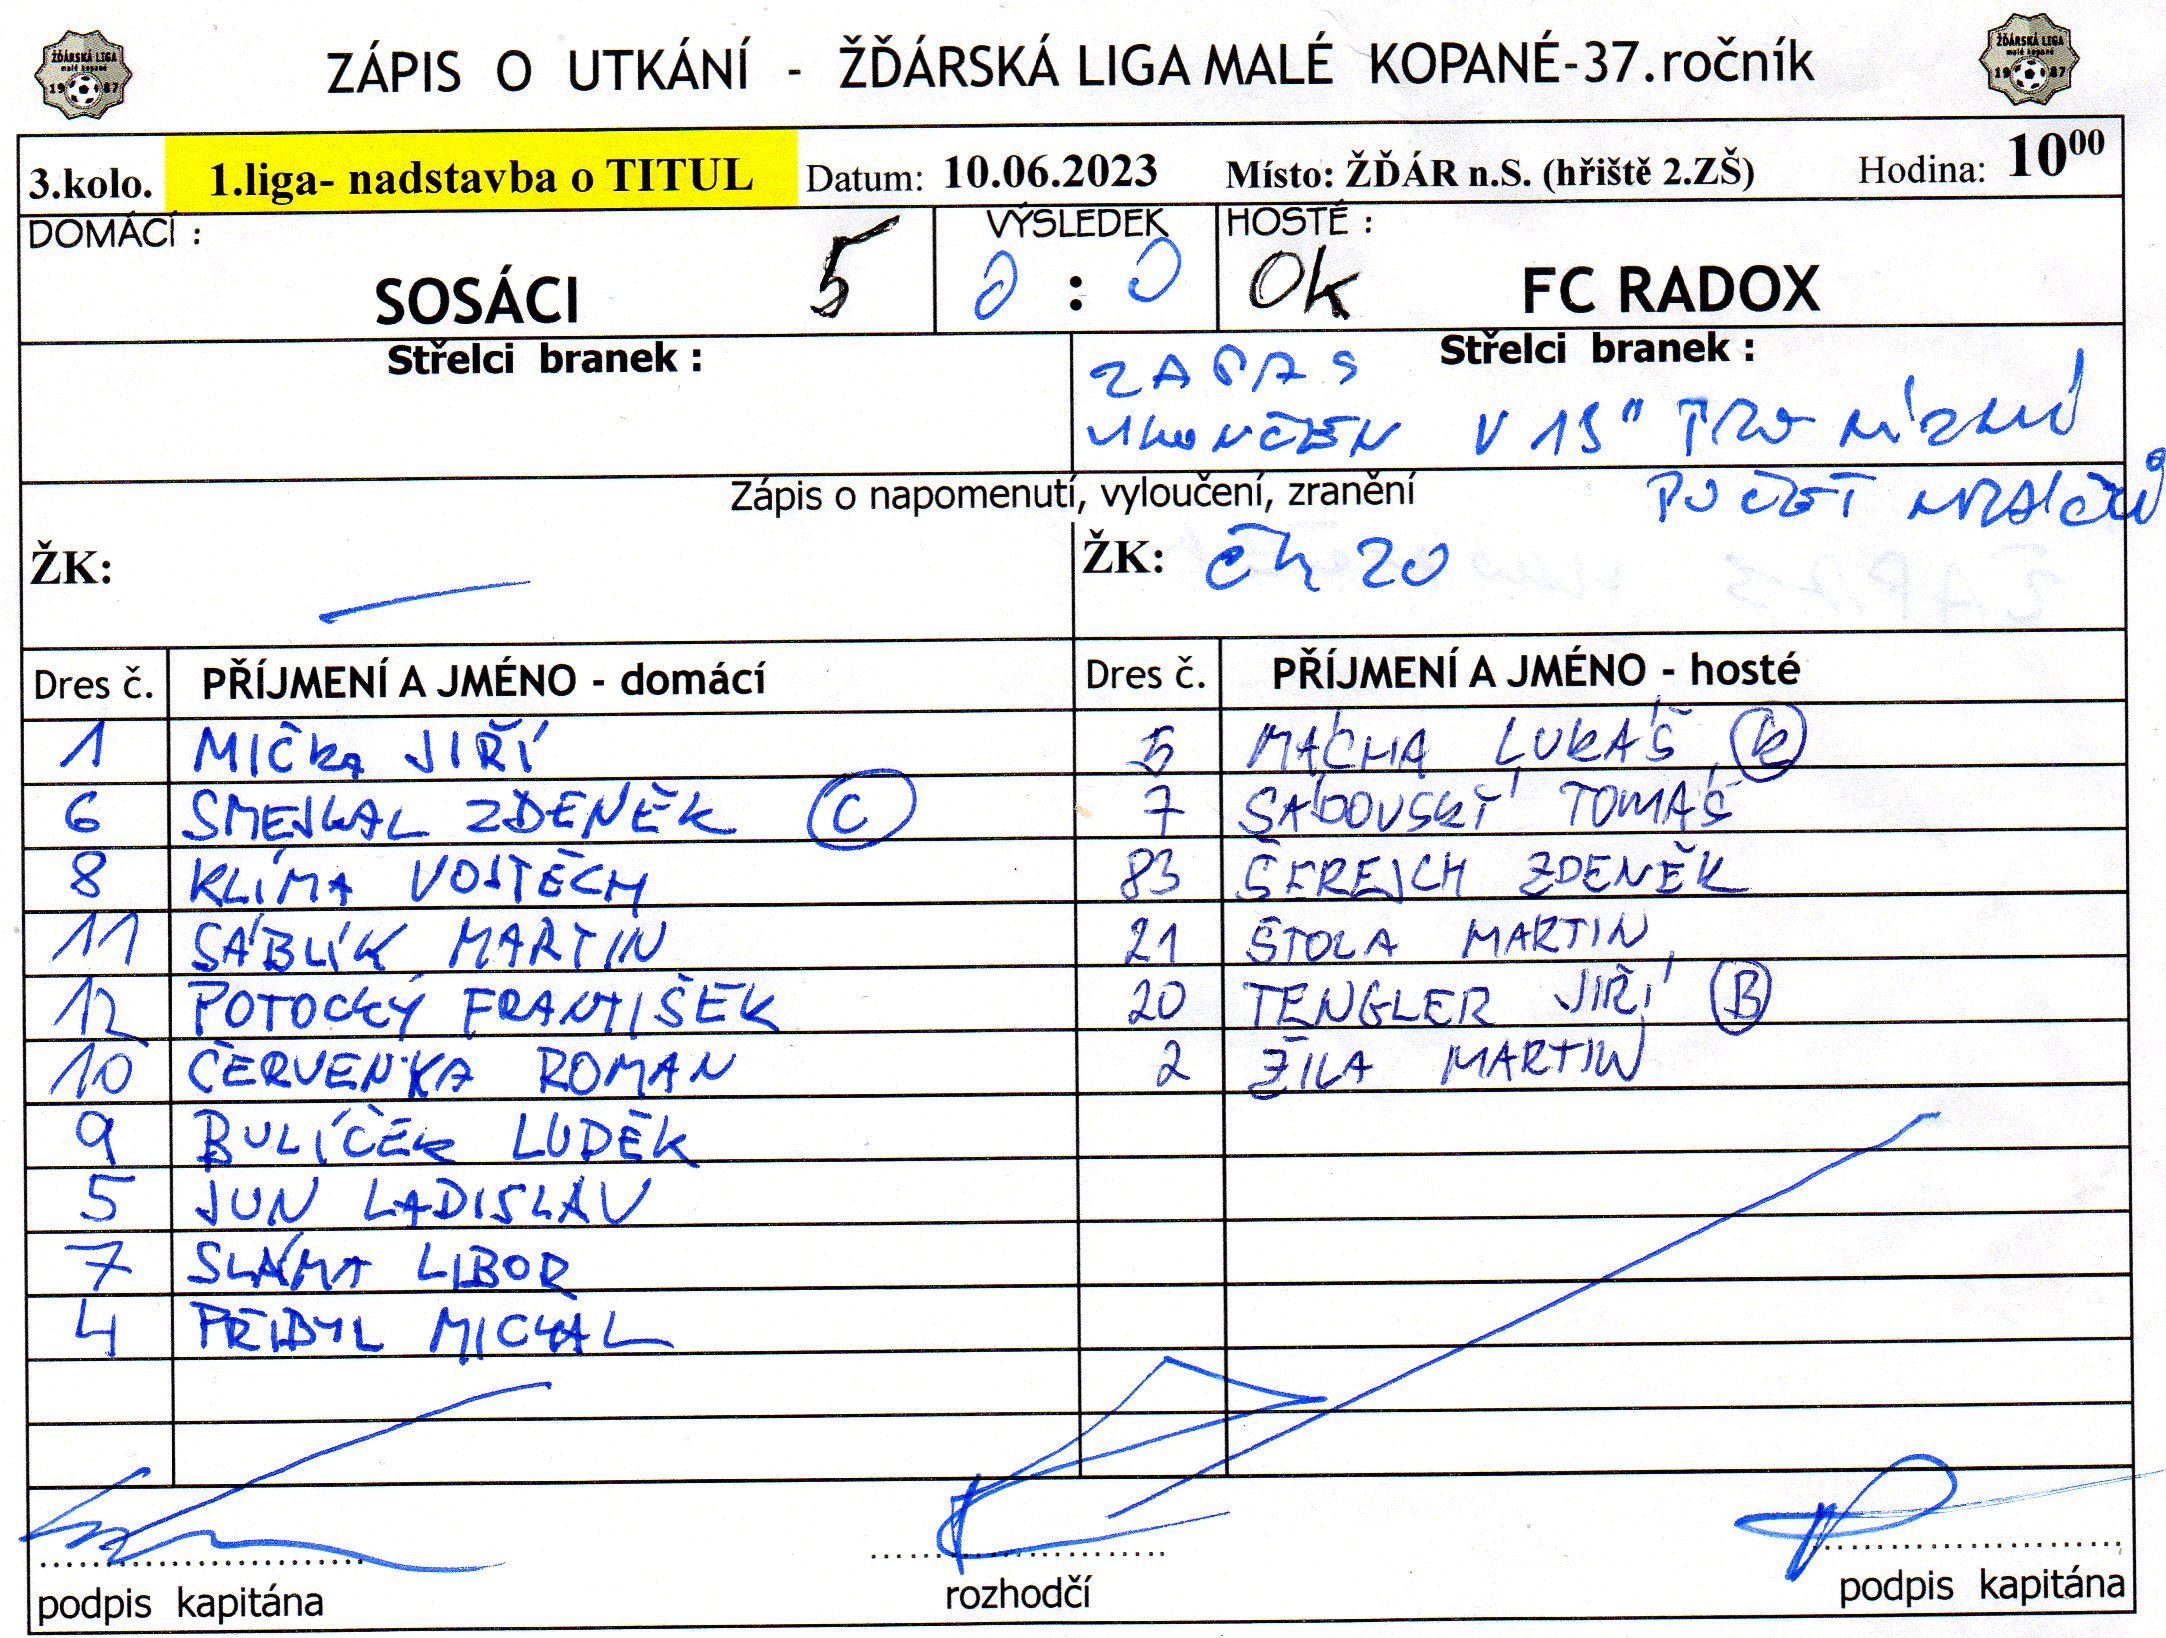 ŽĎÁRSKÁ LIGA
malé kopané
1987
ZÁPIS O UTKÁNÍ - ŽĎÁRSKÁ LIGA MALÉ KOPANÉ-37.ročník
ŽĎÁRSKÁ LIGA
malé kopané
1987
3.kolo. 1.liga- nadstavba o TITUL Datum: 10.06.2023 Místo: ŽĎÁR n.S. (hřiště 2.ZŠ) Hodina: 10⁰⁰
DOMÁCÍ : VÝSLEDEK HOSTÉ :
SOSÁCI 5 0 : 0 OK FC RADOX
Střelci branek : Střelci branek :
ZAPAS
UKONČEN V 15" PRO NÍZKÝ
POČET HRÁČŮ
Zápis o napomenutí, vyloučení, zranění
ŽK: — ŽK: ČK 20
Dres č. PŘÍJMENÍ A JMÉNO - domácí Dres č. PŘÍJMENÍ A JMÉNO - hosté
1 MIČKA JIŘÍ 5 MÁCHA LUKÁŠ K
6 SMEJKAL ZDENĚK C 7 SADOVSKÝ TOMÁŠ
8 KLÍMA VOJTĚCH 83 ŠEREJCH ZDENĚK
11 SÁBLÍK MARTIN 21 ŠTOLA MARTIN
12 POTOCKÝ FRANTIŠEK 20 TENGLER JIŘÍ B
10 ČERVENKA ROMAN 2 ŽILA MARTIN
9 BULÍČEK LUDĚK
5 JUN LADISLAV
7 SLÁMA LIBOR
4 PŘIBYL MICHAL
podpis kapitána rozhodčí podpis kapitána